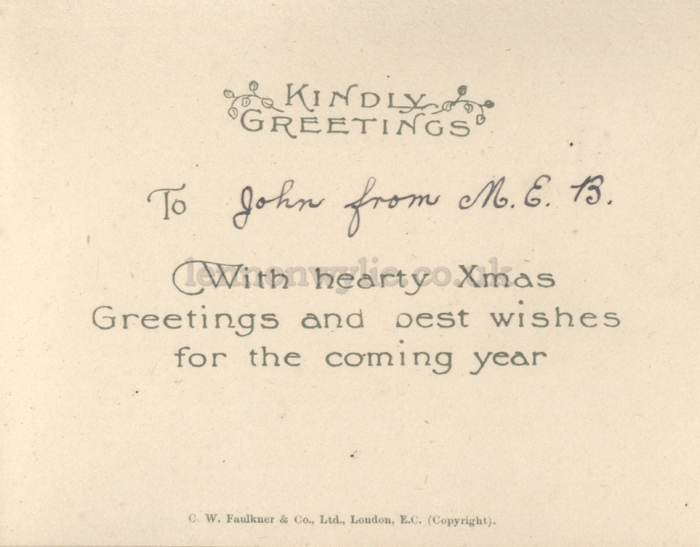 KINDLY
GREETINGS
To John from M. E. B.
lennonwylie.co.uk
With hearty Xmas
Greetings and best wishes
for the coming year
C. W. Faulkner & Co., Ltd., London, E.C. (Copyright).